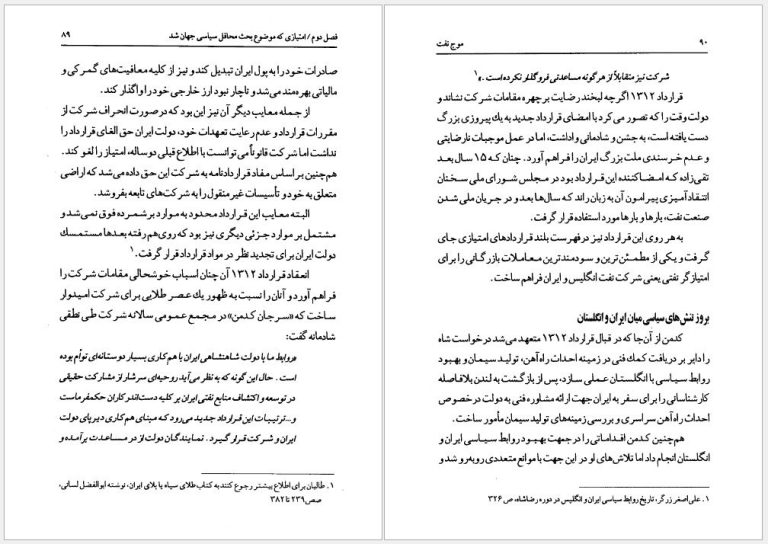 فصل دوم / امتیازی که موضوع بحث محافل سیاسی جهان شد ۸۹
صادرات خود را به پول ایران تبدیل کند و نیز از کلیه معافیت‌های گمرکی و
مالیاتی بهره‌مند می‌شد و ناچار نبود ارز خارجی خود را واگذار کند.
از جمله معایب دیگر آن نیز این بود که در صورت انحراف شرکت از
مقررات قرارداد و عدم رعایت تعهدات خود، دولت ایران حق الغای قرارداد را
نداشت اما شرکت قانوناً می‌توانست با اطلاع قبلی دو ساله، امتیاز را لغو کند.
هم‌چنین بر اساس مفاد قراردادنامه به شرکت این حق داده می‌شد که اراضی
متعلق به خود و تأسیسات غیر منقول را به شرکت‌های تابعه بفروشد.
البته معایب این قرارداد محدود به موارد بر شمرده فوق نمی‌شد و
مشتمل بر موارد جزئی دیگری نیز بود که روی‌هم رفته بعدها مستمسك
دولت ایران برای تجدید نظر در مواد قرارداد قرار گرفت.۱
انعقاد قرارداد ۱۳۱۲ آن چنان اسباب خوشحالی مقامات شرکت را
فراهم آورد و آنان را نسبت به ظهور یك عصر طلایی برای شرکت امیدوار
ساخت که «سرجان کدمن» در مجمع عمومی سالانه شرکت طی نطقی
شادمانه گفت:
«روابط ما با دولت شاهنشاهی ایران با هم‌کاری بسیار دوستانه‌ای توأم بوده
است . حال این گونه که به نظر می‌آید روحیه‌ای سرشار از مشارکت حقیقی
در توسعه و اکتشاف منابع نفتی ایران بر کلیه دست‌اندرکاران حکمفرماست
و...ترتیبات این قرارداد جدید می‌رود که مبنای هم‌کاری دیرپای دولت
ایران و شرکت قرار گیرد . نمایندگان دولت از در مساعدت برآمده و
۱. طالبان برای اطلاع بیشتر رجوع کنند به کتاب طلای سیاه یا بلای ایران، نوشته ابوالفضل لسانی،
صص ۲۳۹ تا ۳۸۲
۹۰ موج نفت
شرکت نیز متقابلاً از هر گونه مساعدتی فروگذار نکرده است .»۱
قرارداد ۱۳۱۲ اگر چه لبخند رضایت بر چهره مقامات شرکت نشاند و
دولت وقت را که تصور می‌کرد با امضای قرارداد جدید به یك پیروزی بزرگ
دست یافته است، به جشن و شادمانی واداشت، اما در عمل موجبات نارضایتی
و عدم خرسندی ملت بزرگ ایران را فراهم آورد. چنان که ۱۵ سال بعد
تقی‌زاده که امضاکننده این قرارداد بود در مجلس شورای ملی سخنان
انتقادآمیزی پیرامون آن به زبان راند که سال‌ها بعد و در جریان ملی شدن
صنعت نفت، بارها و بارها مورد استفاده قرار گرفت.
به هر روی این قرارداد نیز در فهرست بلند قراردادهای امتیازی جای
گرفت و یکی از مطمئن‌ترین و سودمندترین معاملات بازرگانی را برای
امتیازگر نفتی یعنی شرکت نفت انگلیس و ایران فراهم ساخت.
بروز تنش‌های سیاسی میان ایران و انگلستان
کدمن از آن‌جا که در قبال قرارداد ۱۳۱۲ متعهد می‌شد درخواست شاه
را دایر بر دریافت کمك فنی در زمینه احداث راه‌آهن، تولید سیمان و بهبود
روابط سیاسی با انگلستان عملی سازد، پس از بازگشت به لندن بلافاصله
کارشناسانی را برای سفر به ایران جهت ارائه مشاوره فنی به دولت در خصوص
احداث راه‌آهن سراسری و بررسی زمینه‌های تولید سیمان مأمور ساخت.
هم‌چنین کدمن اقداماتی را در جهت بهبود روابط سیاسی ایران و
انگلستان انجام داد اما تلاش‌های او در این جهت با موانع متعددی روبه‌رو شد و
۱. علی‌اصغر زرگر، تاریخ روابط سیاسی ایران و انگلیس در دوره رضاشاه، ص ۳۲۶